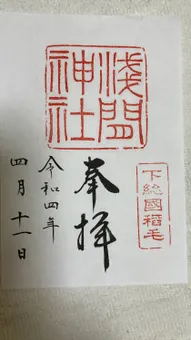 淺間神社
下総國稲毛
奉拝
令和四年
四月十一日